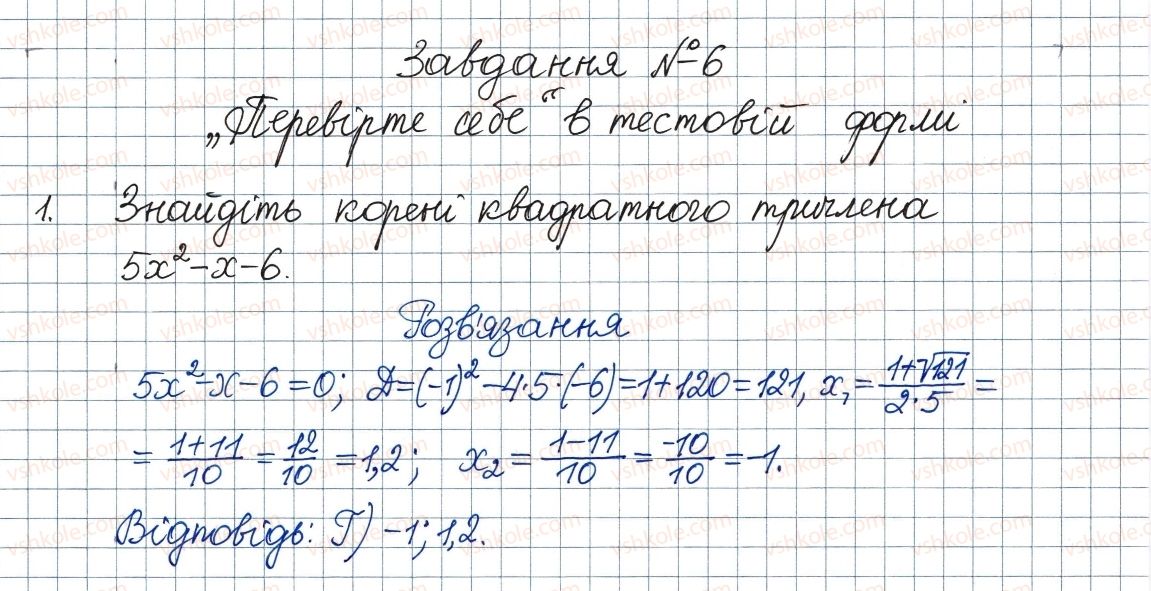 Завдання №6
„Перевірте себе“ в тестовій формі
1. Знайдіть корені квадратного тричлена
5x²-x-6.
Розв'язання
5x²-x-6=0; Д=(-1)²-4·5·(-6)=1+120=121, x₁=(1+√121)/(2·5)=
=(1+11)/10=12/10=1,2; x₂=(1-11)/10=-10/10=-1.
Відповідь: Г) -1; 1,2.